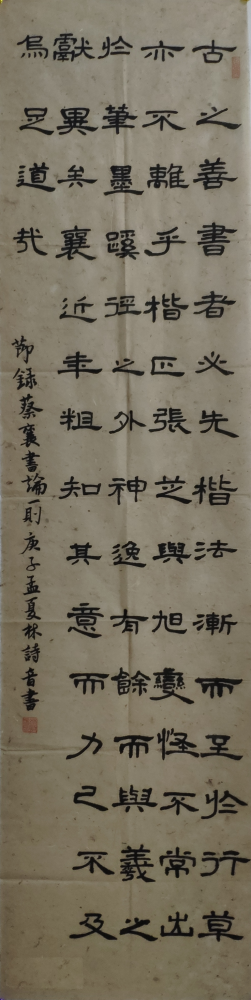 古之善書者必先楷法漸而至於行草
亦不離乎楷正張芝與旭變怪不常出
於筆墨蹊徑之外神逸有餘而與羲之
獻異矣襄近年粗知其意而力已不及
烏足道哉
節錄蔡襄書論一則庚子孟夏林詩音書